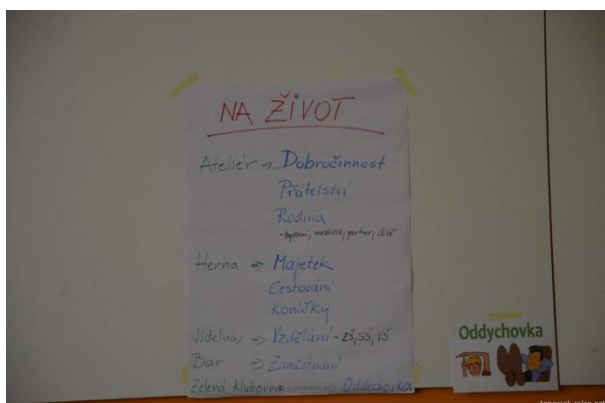 NA ŽIVOT
Ateliér → Dobročinnost
Přátelství
Rodina
- bydlení, mazlíček, partner, dítě
Herna → Majetek
Cestování
Koníčky
Jídelna → Vzdělání - ZŠ, SŠ, VŠ
Bar → Zaměstnání
Zelená klubovna → Oddechovka
Oddychovka